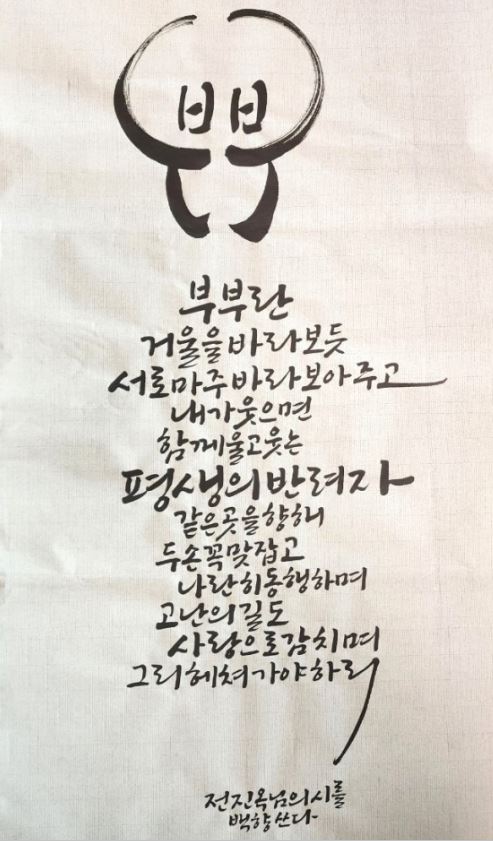 부부
부부란
거울을 바라보듯
서로 마주 바라보아 주고
내가 웃으면
함께 울고 웃는
평생의 반려자
같은 곳을 향해
두 손 꼭 맞잡고
나란히 동행하며
고난의 길도
사랑으로 감치며
그리 헤쳐가야 하리
전진옥님의 시를
백향 쓰다